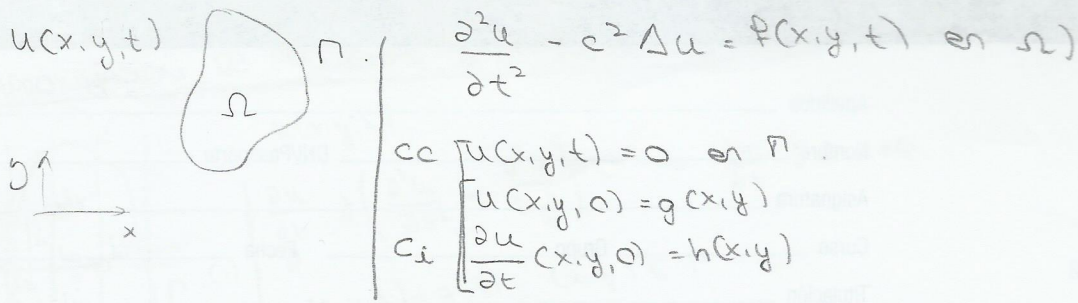 u(x,y,t) Ω Γ. ∂²u/∂t² - c² Δu = f(x,y,t) en Ω)
y
x
cc u(x,y,t) = 0 en Γ.
u(x,y,0) = g(x,y)
Ci ∂u/∂t (x,y,0) = h(x,y)